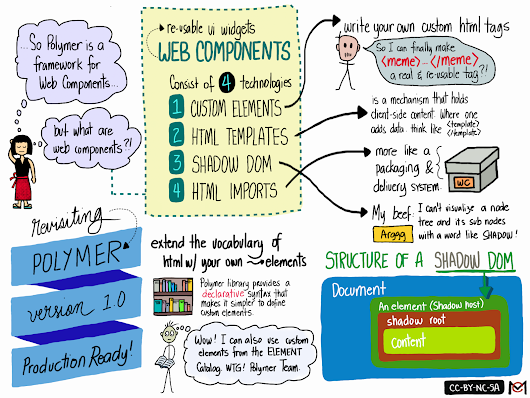 ...So Polymer is a
framework for
Web Components...
but what are
web components?!
re-usable ui widgets
WEB COMPONENTS
Consist of 4 technologies
1 CUSTOM ELEMENTS
2 HTML TEMPLATES
3 SHADOW DOM
4 HTML IMPORTS
write your own custom html tags
So I can finally make
<meme>...</meme>
a real & re-usable tag?!
is a mechanism that holds
client-side content. Where one
adds data. think like <template>
</template>
more like a
packaging &
delivery SYSTEM.
WC
My beef:
Argqq
I can't visualize a node
tree and its sub nodes
with a word like SHADOW!
revisiting
POLYMER
version 1.0
Production Ready!
extend the vocabulary of
html w/ your own elements
Polymer library provides a
declarative syntax that
makes it simpler to define
custom elements.
Wow! I can also use custom
elements from the ELEMENT
Catalog. WTG! Polymer Team.
STRUCTURE OF A SHADOW DOM
Document
An element (Shadow host)
shadow root
Content
CC-BY-NC-SA